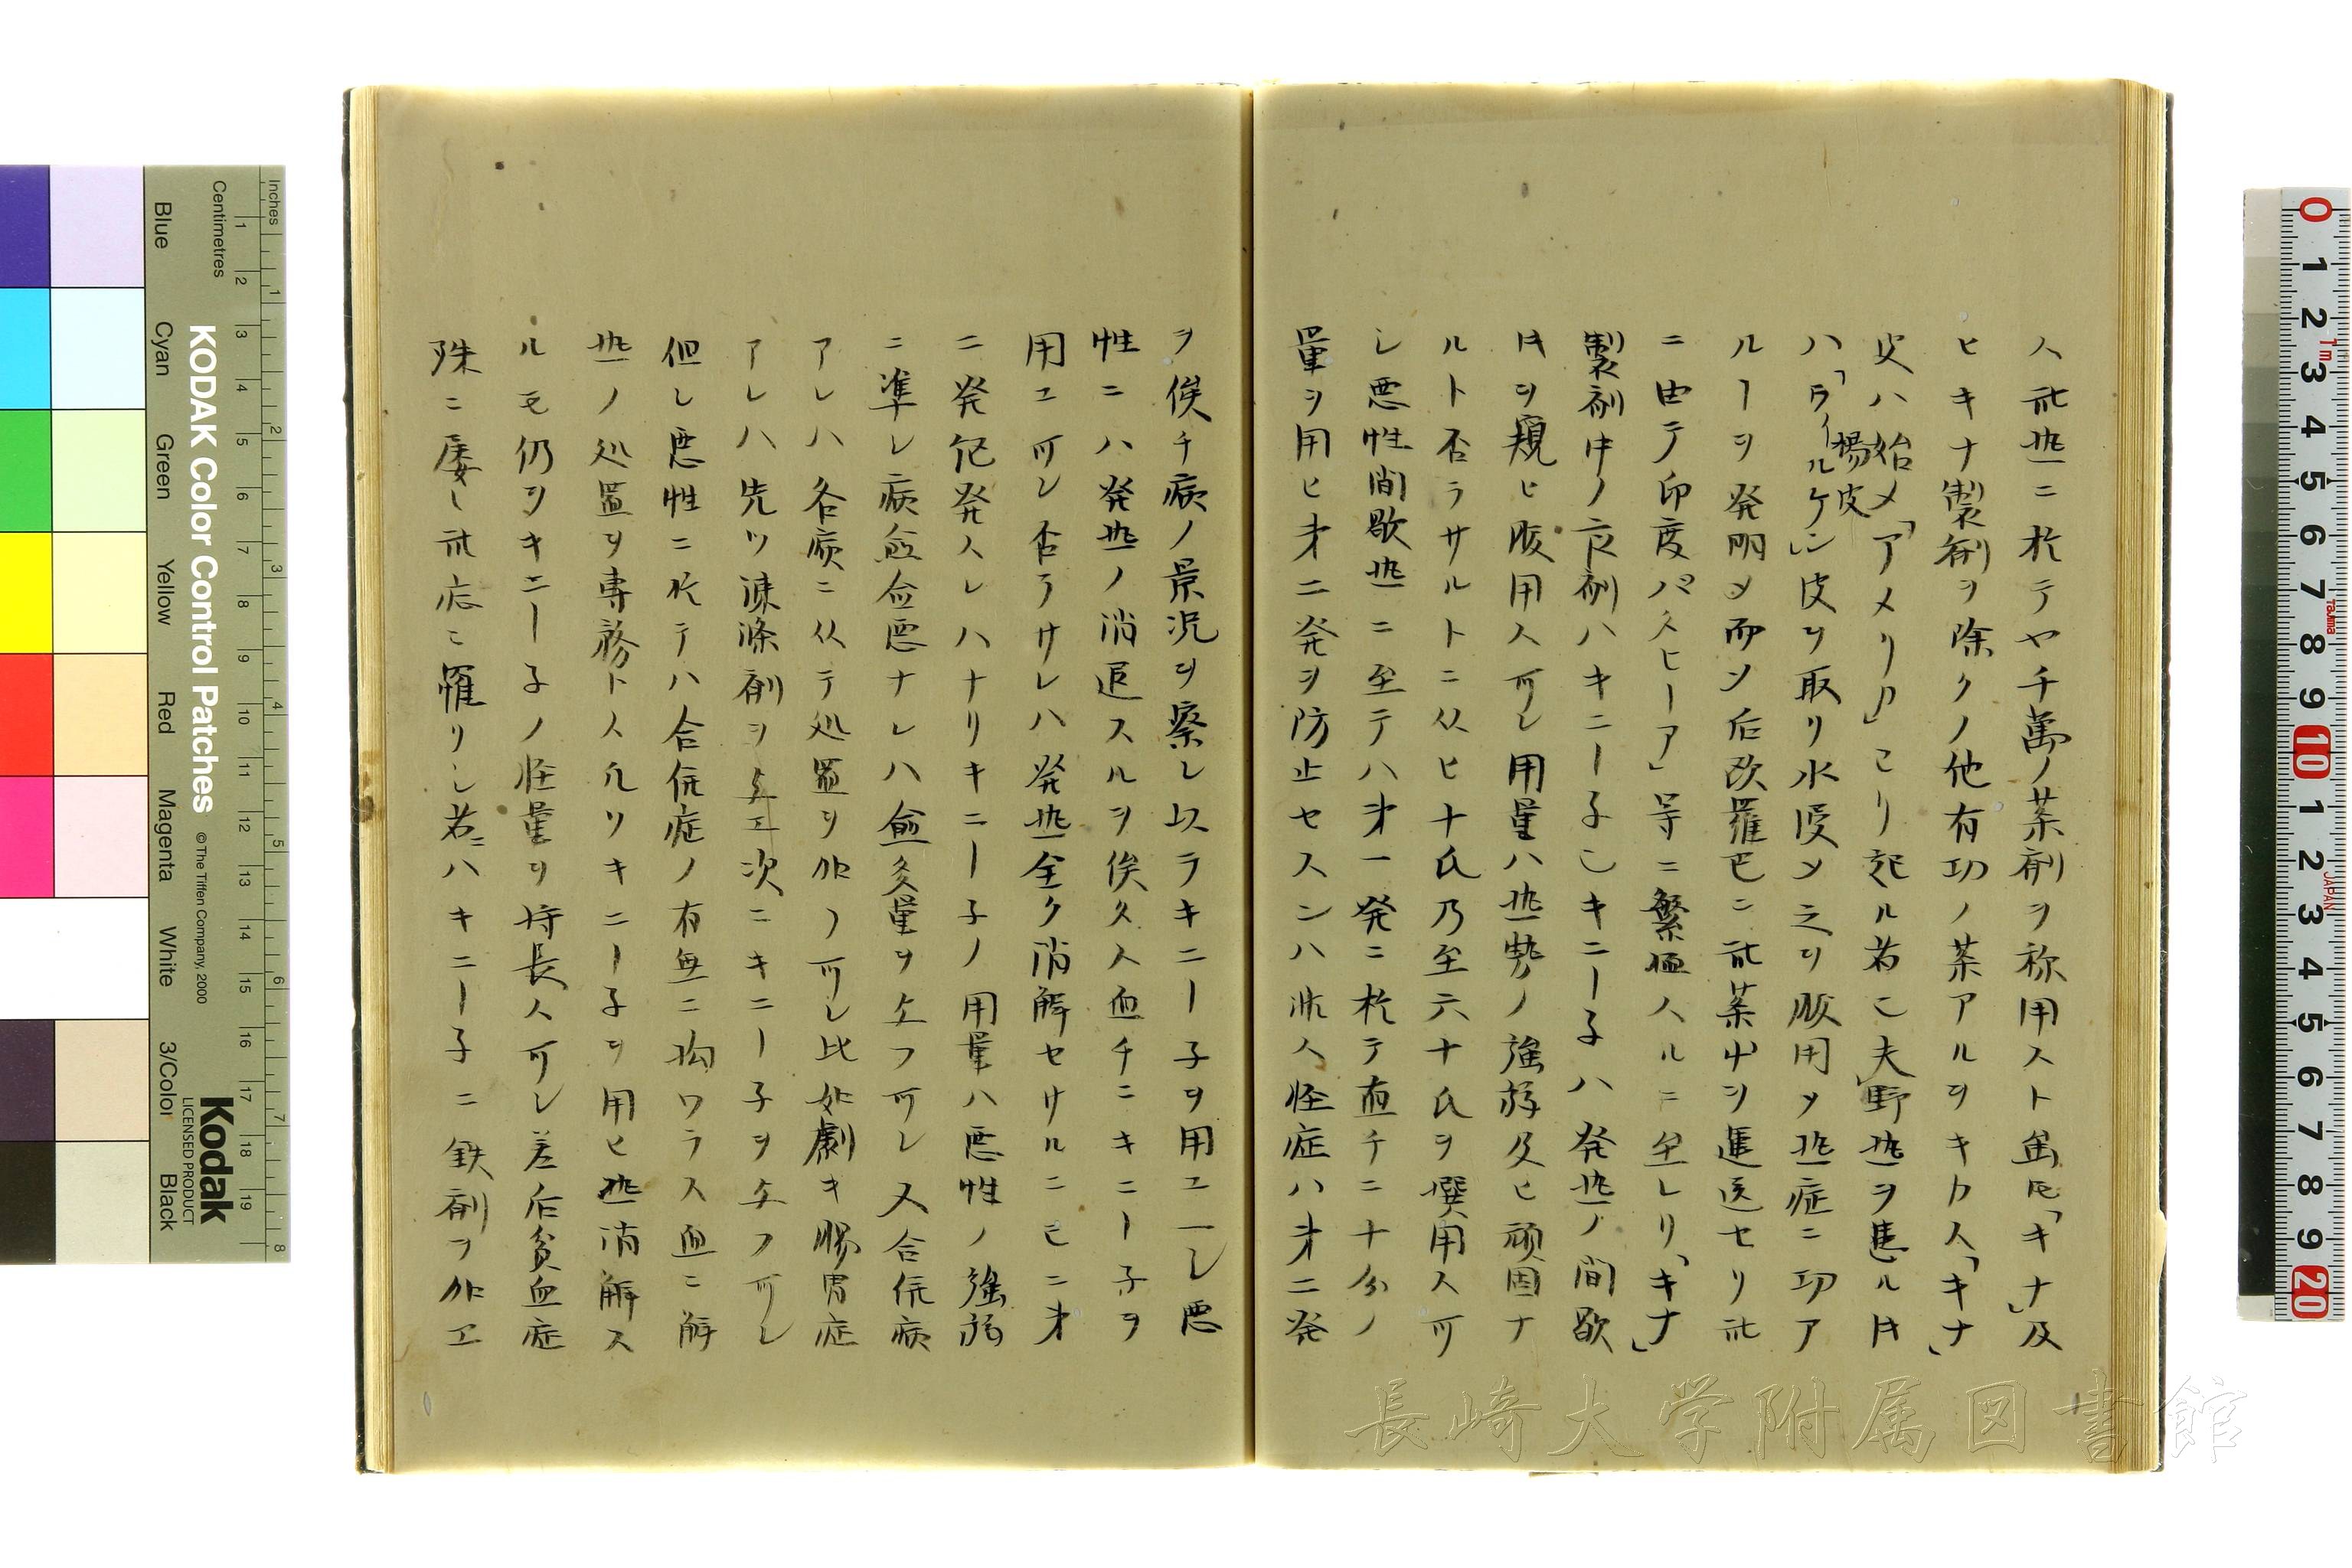 人此热ニ於テヤ千萬ノ薬剤ヲ称用スト虽𪜈「キナ」及
ヒキナ製剤ヲ除クノ他有功ノ薬アルヲキカス「キナ」
皮ハ始メ「アメリカ」ヨリ起ル若シ夫野热ヲ患ル時
ハ「ウイルケン」皮ヲ取リ水浸メ之ヲ服用メ热症ニ功ア
楊皮
ルーヲ発明メ而シ后欧羅巴ニ此薬ヲ進送セリ此
ニ由テ印度バタヒーア」等ニ繁殖スルニ至レリ「キナ」
製剤中ノ良剤ハキニー子也キニー子ハ発热ノ間歇
時ヲ窺ヒ服用ス可シ用量ハ热勢ノ強弱及ヒ頑固ナ
ルト否ラサルトニ从ヒ十氏乃至六十氏ヲ撰用ス可
シ悪性間歇热ニ至テハ才一発ニ於テ直チニ十分ノ
量ヲ用ヒ才二発ヲ防止セスンハ非ス怪症ハ才二発
ヲ俟チ病ノ景况ヲ察シ以テキニー子ヲ用ユーシ悪
性ニハ発热ノ消退スルヲ俟タス直チニキニー子ヲ
用ユ可シ否ラサレハ発热全ク消解セサルニモニ才
ニ発犯発スレハナリキニー子ノ用量ハ悪性ノ強弱
ニ準シ病愈々悪ナレハ愈多量ヲ与フ可シ又合併病
アレハ各病ニ从テ処置ヲ加フ可シ比如劇キ腸胃症
アレハ先ツ涑滌剤ヲ与エ次ニキニー子ヲ与フ可シ
但し悪性ニ於テハ合併症ノ有無ニ拘ワラス直ニ解
热ノ処置ヲ専務トス凡ソキニー子ヲ用ヒ热消解ス
ルモ仍ヲキニー子ノ怪量ヲ持長ス可シ差后貧血症
殊ニ屡々此症ニ罹リシ者ニハキニー子ニ鉄剤ヲ加エ
長崎大学附属図書館
KODAK Color Control Patches
© The Tiffen Company, 2000
Kodak
LICENSED PRODUCT
Inches
Centimetres
Blue Cyan Green Yellow Red Magenta White 3/Color Black